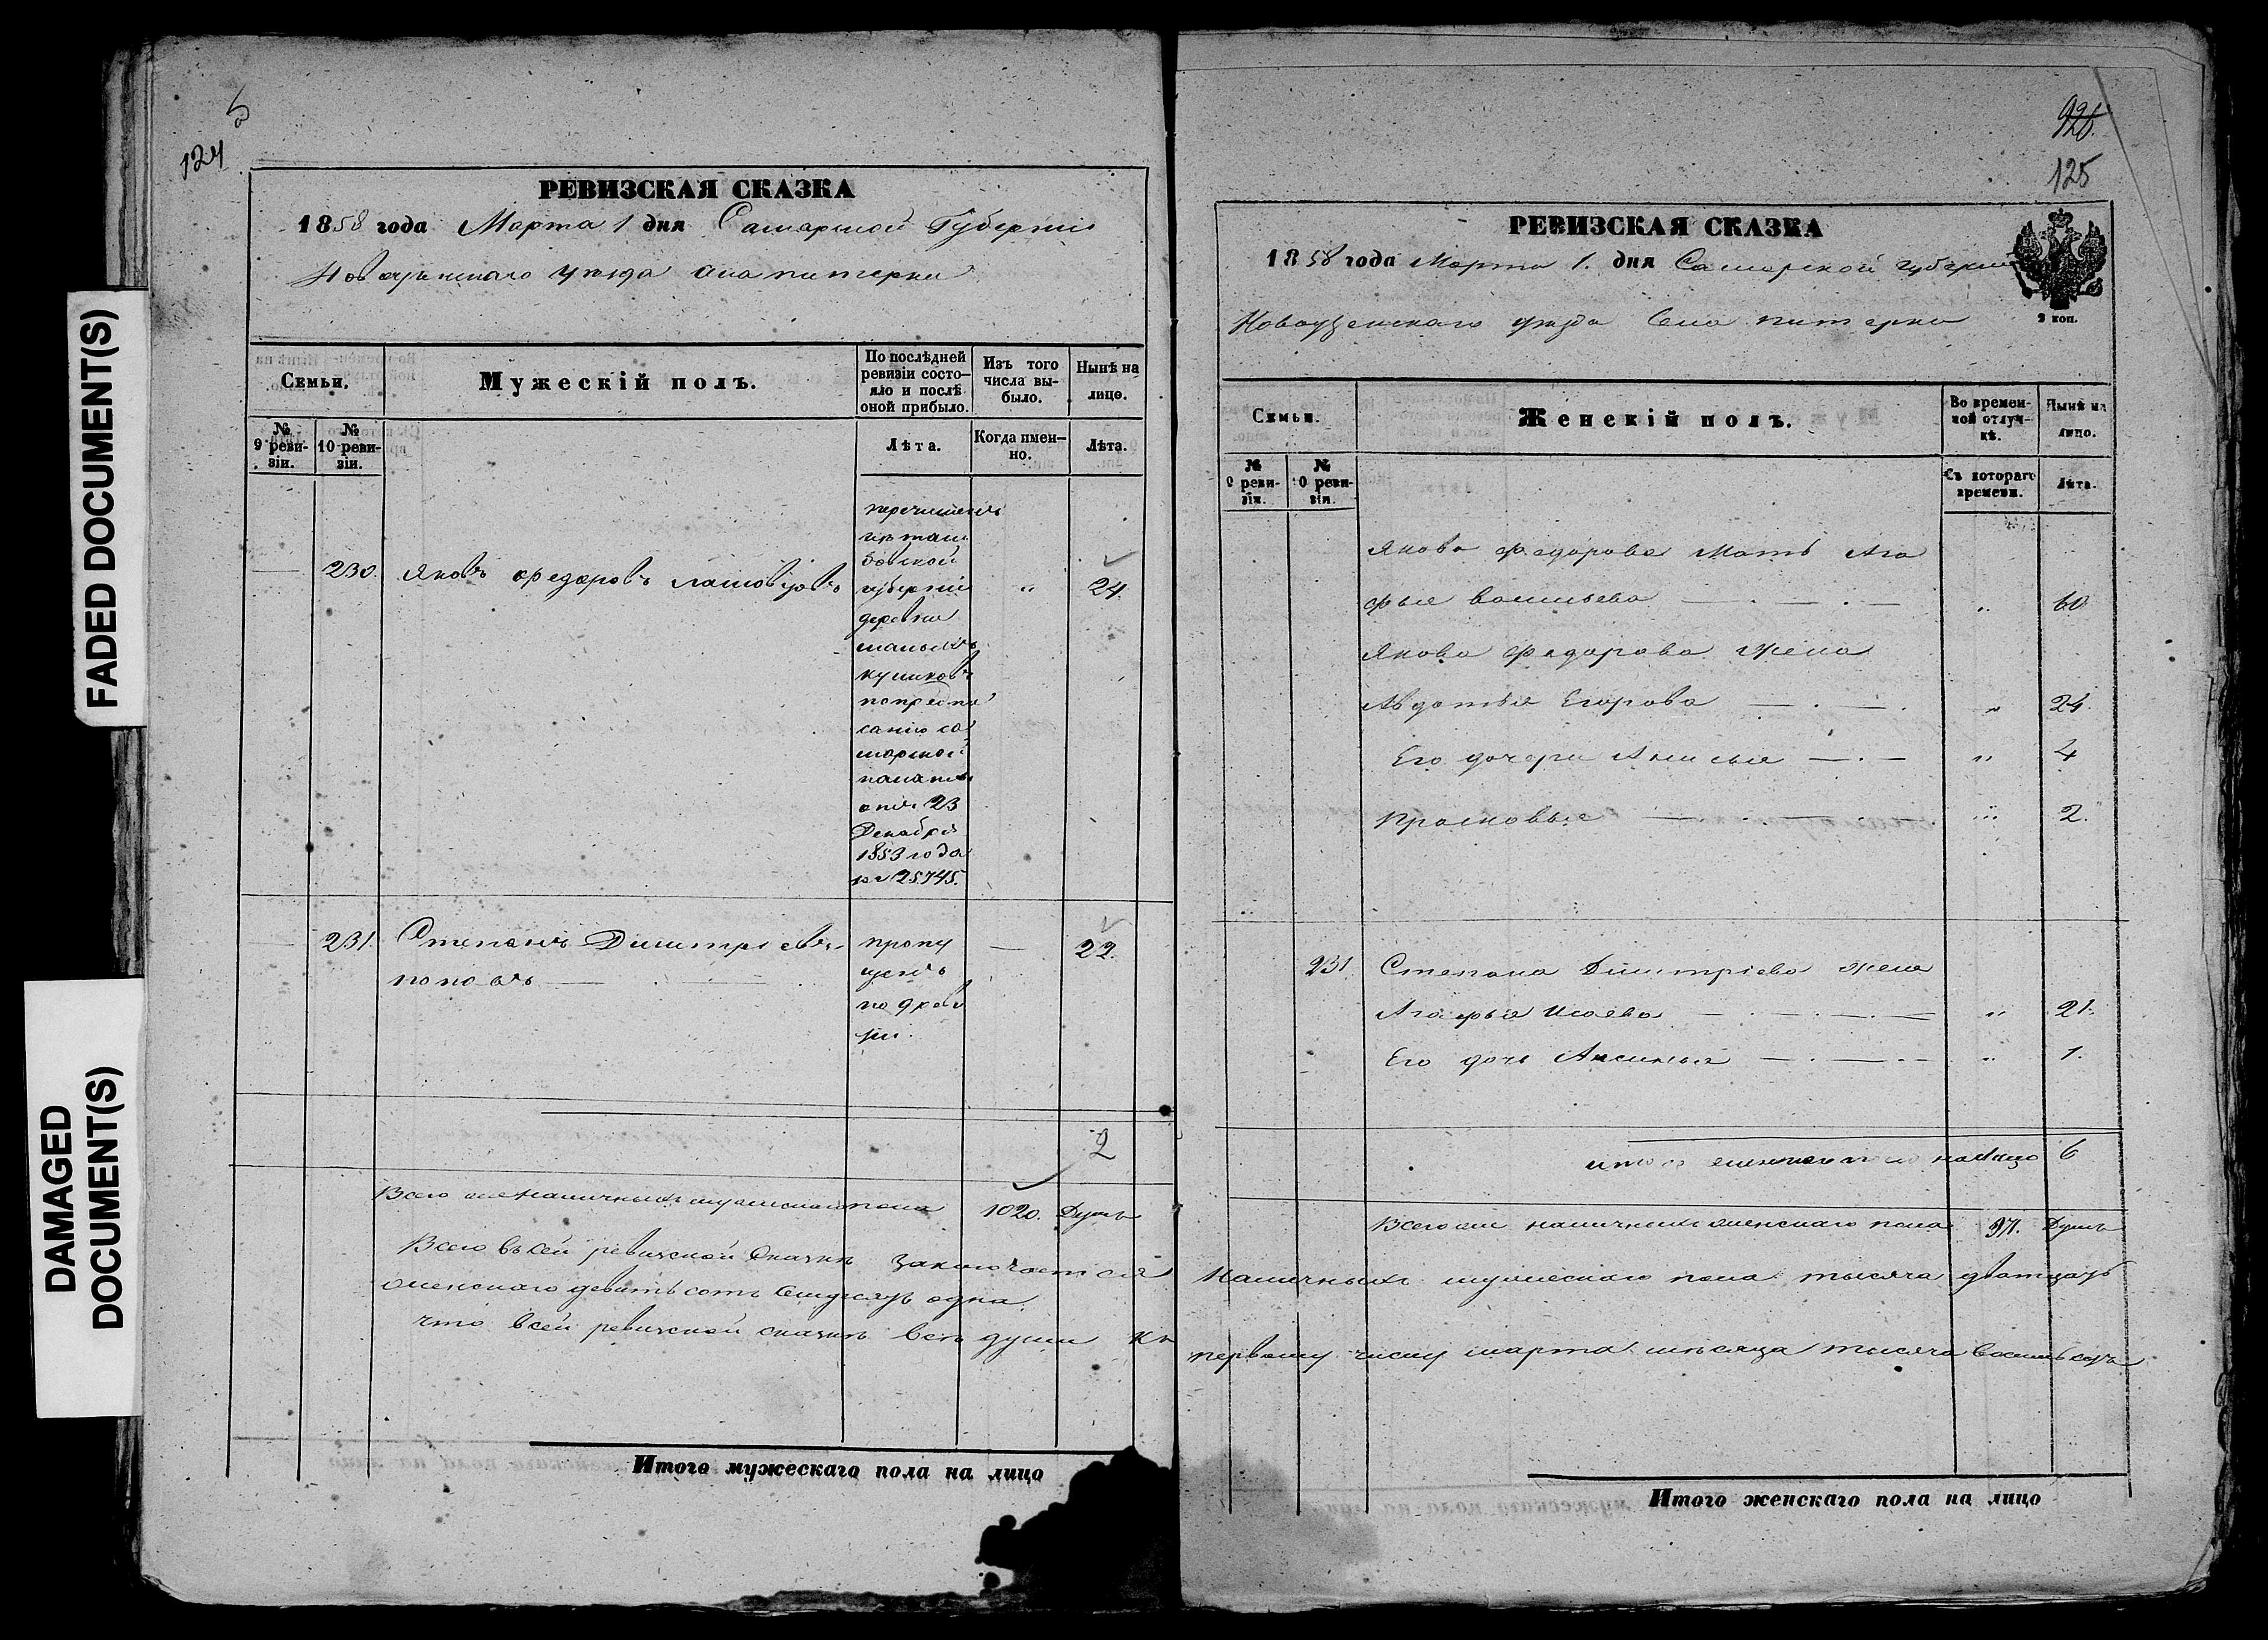 FADED DOCUMENT(S)
DAMAGED
DOCUMENT(S)
124
РЕВИЗСКАЯ СКАЗКА
1858 года Марта 1 дня Самарской Губерніи
Новоузенскаго уѣзда села питерки
Семьи.
Мужескій полъ.
По послѣдней ревизіи состояло и послѣ оной прибыло.
Изъ того числа выбыло.
Нынѣ на лицо.
№ 9 ревизіи.
№ 10 ревизіи.
Лѣта.
Когда именно.
Лѣта.
перечисленъ
изъ там
бовской
230. Яковъ Федоровъ губерніи " 24.
деревни
попредпи
санію са
марской
палаты
отъ 23
Декабря
1853 года
№ 25745.
231. Степанъ Димитріевъ пропу — 22.
поповъ — щенъ
по 9 реви
зіи.
2
Всего же наличныхъ мужескаго пола 1020. Душъ
Всего въ сей ревизской сказкѣ заключается
женскаго девятьсотъ семдесятъ одна.
что всей ревизской сказкѣ всѣ души къ
Итого мужескаго пола на лицо
926.
125
РЕВИЗСКАЯ СКАЗКА
1858 года Марта 1. дня Самарской губерніи
2 коп.
Новоузенскаго уѣзда Села питерки
Семьи.
Женскій полъ.
Во временной отлучкѣ.
Нынѣ на лицо.
№ 9 ревизіи.
№ 10 ревизіи.
Съ котораго времени.
Лѣта.
Якова Федорова Мать Ага
фья васильева — " 60
Якова Федорова Жена
Авдотья Егорова — " 24.
Его дочери Анисья — " 4
Прасковья — " 2.
231. Степана Димитріева жена
Агафья Исаева — " 21.
Его дочь Аксинья — " 1.
итого женскаго пола налицо 6
Всего же наличныхъ женскаго пола 971. Душъ
наличныхъ мужескаго пола тысяча дватцать
первому числу марта мѣсяца тысяча восемьсотъ
Итого женскаго пола на лицо